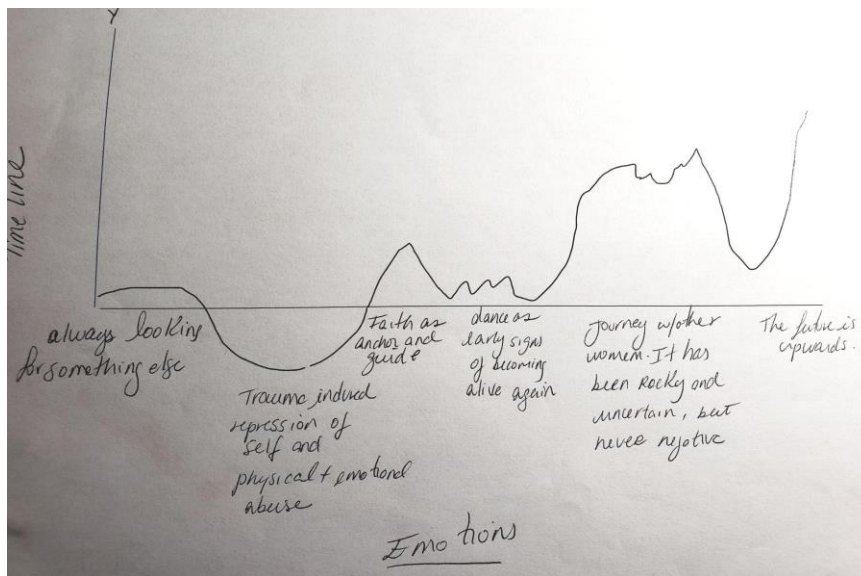 Y
Time line
always looking
for something else
Trauma induced
repression of
self and
physical + emotional
abuse
Faith as
anchor and
guide
dance as
early signs
of becoming
alive again
Journey w/other
women. It has
been Rocky and
uncertain, but
never negative
The future is
upwards.
Emotions